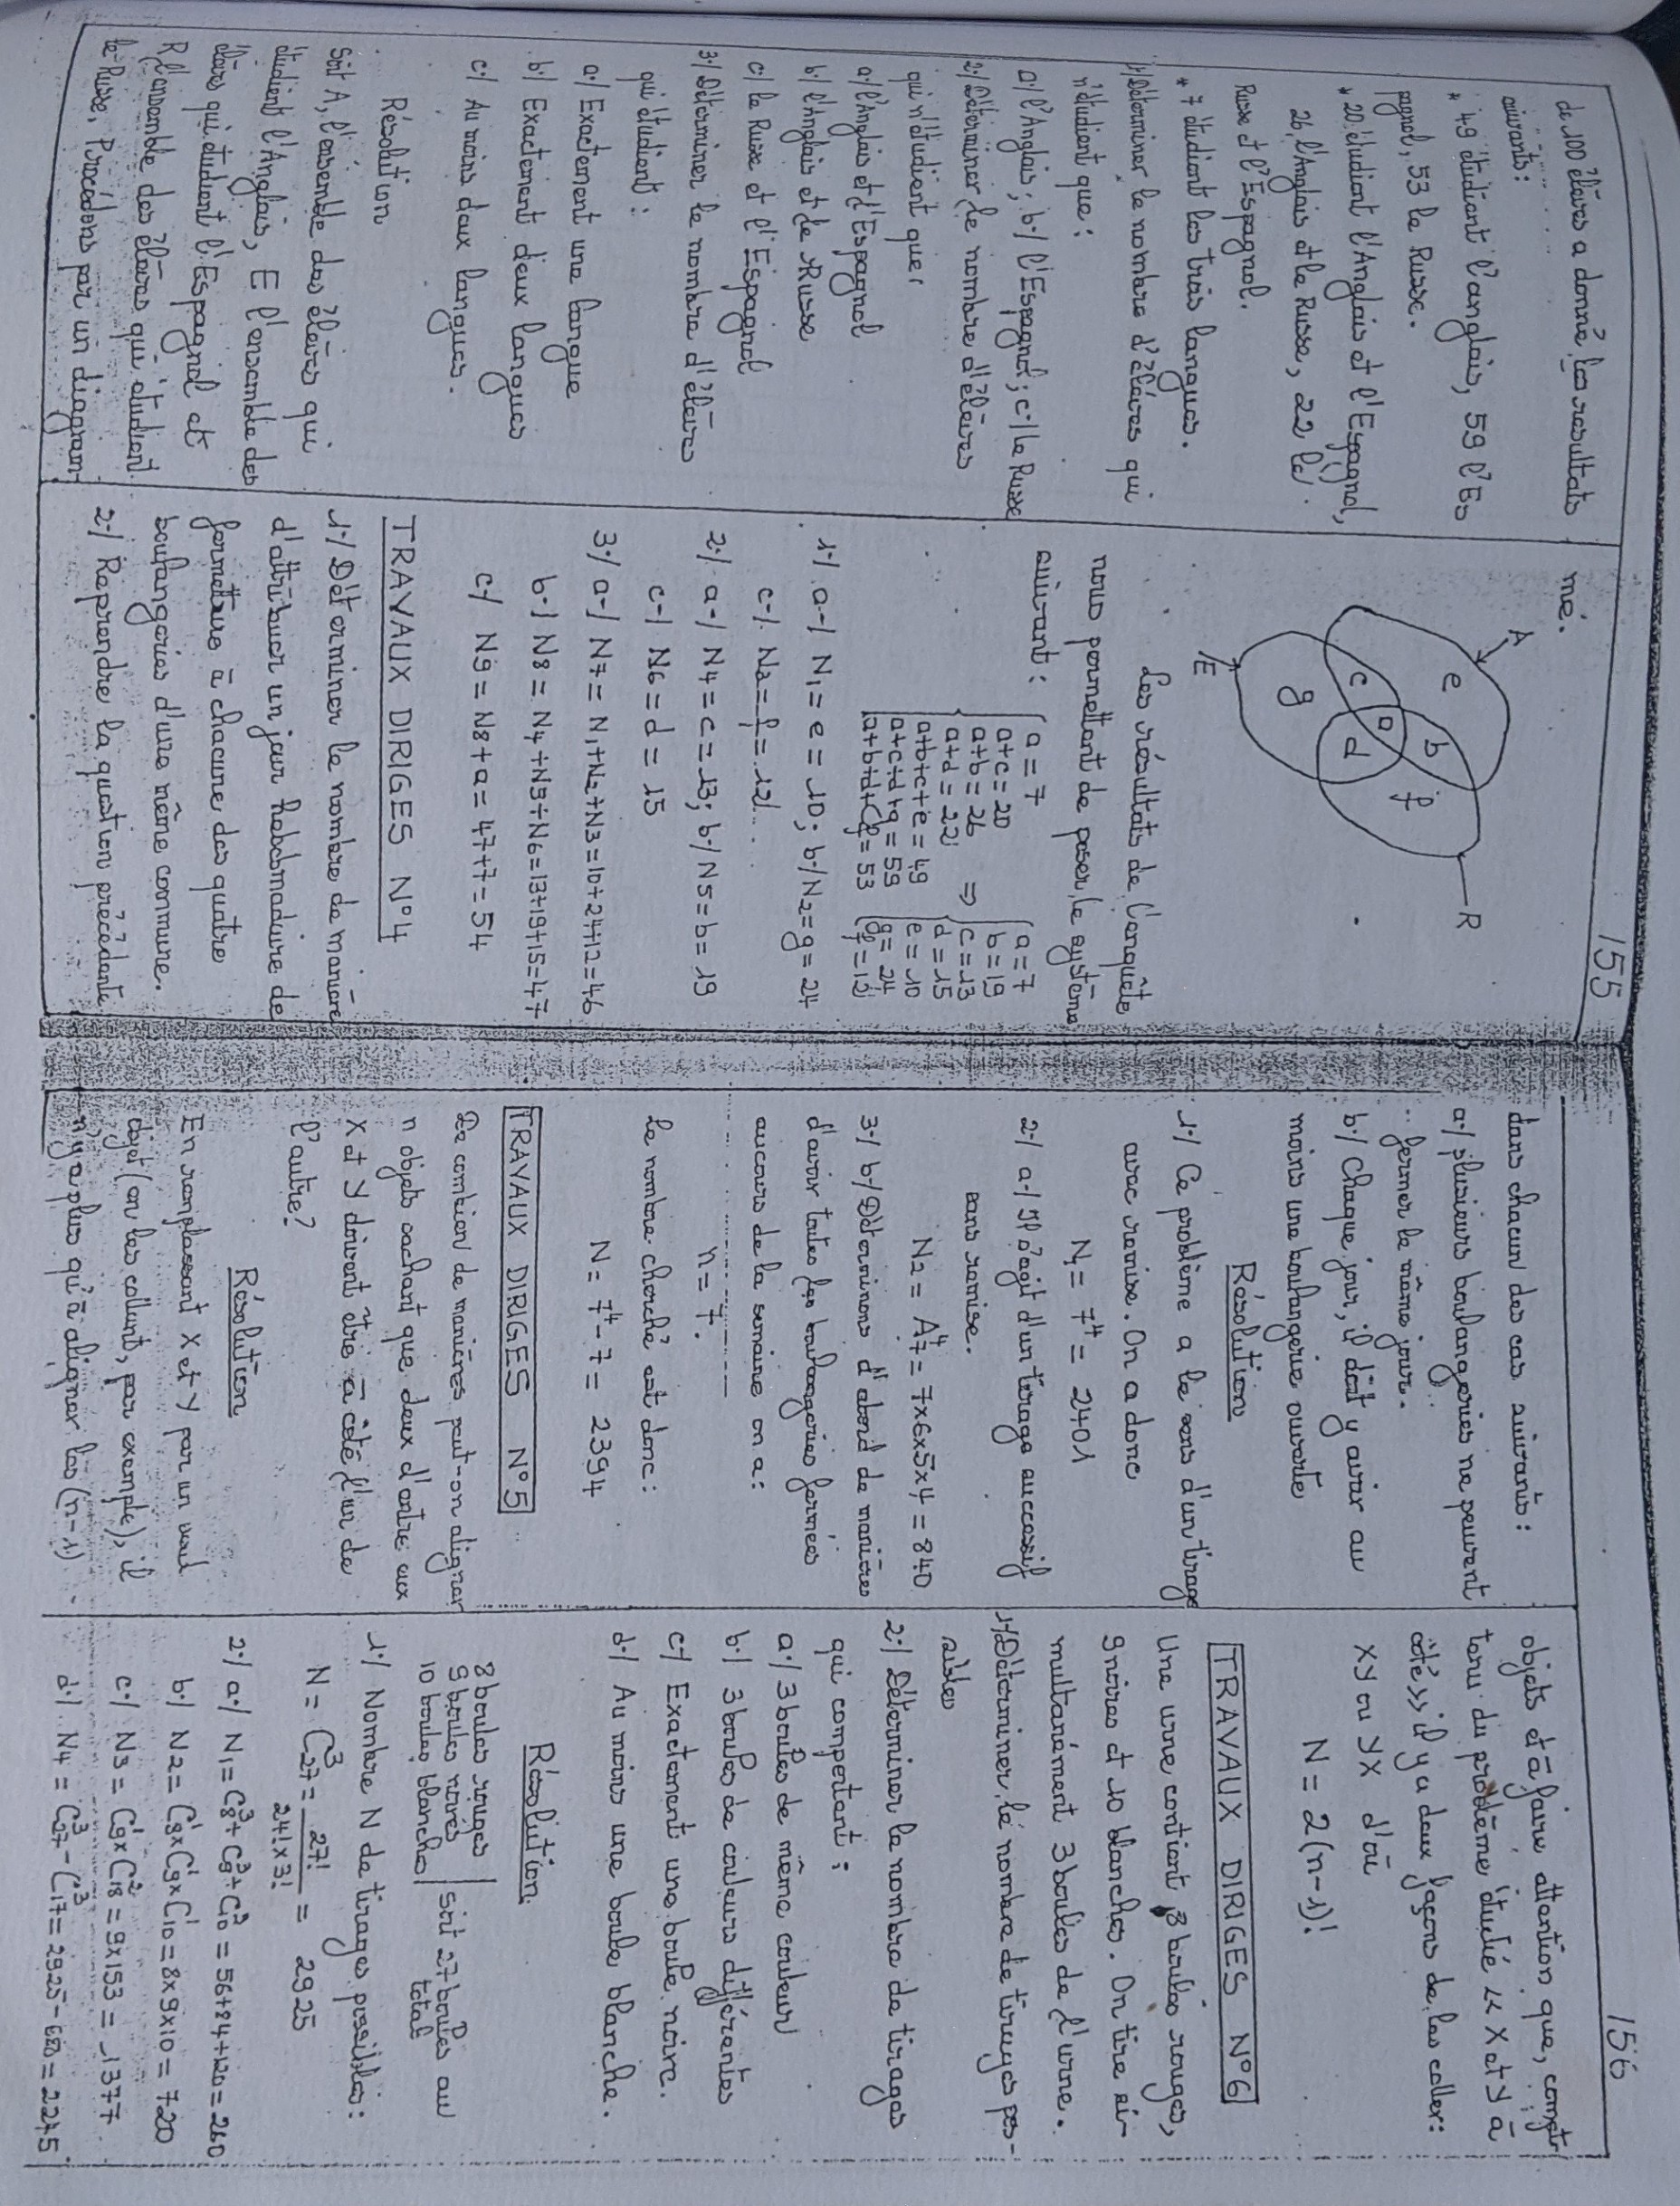 155
de 100 élèves a donné les resultats
suivants :
* 49 étudient l'anglais, 59 l'Es
pagnol, 53 le Russe.
* 20 étudient l'Anglais et l'Espagnol,
26 l'Anglais et le Russe, 22 le
Russe et l'Espagnol.
* 7 étudient les trois langues.
1·/ Déterminer le nombre d'élèves qui
n'étudient que :
a·/ l'Anglais ; b·/ l'Espagnol ; c·/ le Russe
2·/ Déterminer le nombre d'élèves
qui n'étudient que,
a·/ l'Anglais et l'Espagnol
b·/ l'Anglais et le Russe
c·/ le Russe et l'Espagnol
3·/ Déterminer le nombre d'élèves
qui étudient :
a·/ Exactement une langue
b·/ Exactement deux langues
c·/ Au moins deux langues.
Résolution
Soit A, l'ensemble des élèves qui
étudient l'Anglais, E l'ensemble des
élèves qui étudient l'Espagnol et
R l'ensemble des élèves qui étudient
le Russe, Procédons par un diagram-
mé.
A
R
e
b
f
c
a
d
g
E
Les résultats de l'enquête
nous permettent de poser le système
suivant :
a = 7
a+c = 20
a+b = 26
a+d = 22
a+b+c+e = 49
a+c+d+g = 59
a+b+d+f = 53
=>
a = 7
b = 19
c = 13
d = 15
e = 10
g = 24
f = 12
1·/ a-/ N1 = e = 10 ; b·/ N2 = g = 24
c-/ N3 = f = 12
2·/ a-/ N4 = c = 13 ; b·/ N5 = b = 19
c-/ N6 = d = 15
3·/ a-/ N7 = N1+N2+N3 = 10+24+12 = 46
b-/ N8 = N4+N5+N6 = 13+19+15 = 47
c-/ N9 = N8+a = 47+7 = 54
TRAVAUX DIRIGES N°4
1·/ Déterminer le nombre de manière
d'attribuer un jour hebdomadaire de
fermeture à chacune des quatre
boulangeries d'une même commune.
2·/ Reprendre la question précédente
156
dans chacun des cas suivants :
a·/ plusieurs boulangeries ne peuvent
fermer le même jour.
b·/ chaque jour, il doit y avoir au
moins une boulangerie ouverte
Résolution
1·/ Ce problème a le sens d'un tirage
avec remise. On a donc
N1 = 7⁴ = 2401
2·/ a-/ Il s'agit d'un tirage successif
sans remise.
N2 = A⁴7 = 7x6x5x4 = 840
3·/ b·/ Déterminons d'abord de manières
d'avoir toutes les boulangeries fermées
aucours de la semaine on a :
n = 7.
le nombre cherché est donc :
N = 7⁴ - 7 = 2394
TRAVAUX DIRIGES N°5
De combien de manières peut-on aligner
n objets sachant que deux d'entre eux
X et Y doivent être à côté l'un de
l'autre ?
Résolution
En remplassant X et Y par un seul
objet (on les collent, par exemple), il
n'y a plus qu'à aligner les (n-1)
objets et à faire attention que, compte
tenu du problème étudié << X et Y à
côté >> il y a deux façons de les coller :
XY ou YX d'où
N = 2(n-1)!
TRAVAUX DIRIGES N°6
Une urne contient 8 boules rouges,
9 noires et 10 blanches. On tire si-
multanément 3 boules de l'urne.
1·/ Déterminer le nombre de tirages pos-
sibles
2·/ Déterminer le nombre de tirages
qui comportent :
a·/ 3 boules de même couleur
b·/ 3 boules de couleurs différentes
c·/ Exactement une boule noire.
d·/ Au moins une boule blanche.
Résolution
8 boules rouges
9 boules noires
10 boules blanches
soit 27 boules au
total
1·/ Nombre N de tirages possibles :
N = C³27 = 27! / 24! x 3! = 2925
2·/ a·/ N1 = C³8 + C³9 + C³10 = 56+84+120 = 260
b·/ N2 = C¹8 x C¹9 x C¹10 = 8x9x10 = 720
c·/ N3 = C¹9 x C²18 = 9x153 = 1377
d·/ N4 = C³27 - C³17 = 2925 - 680 = 2245